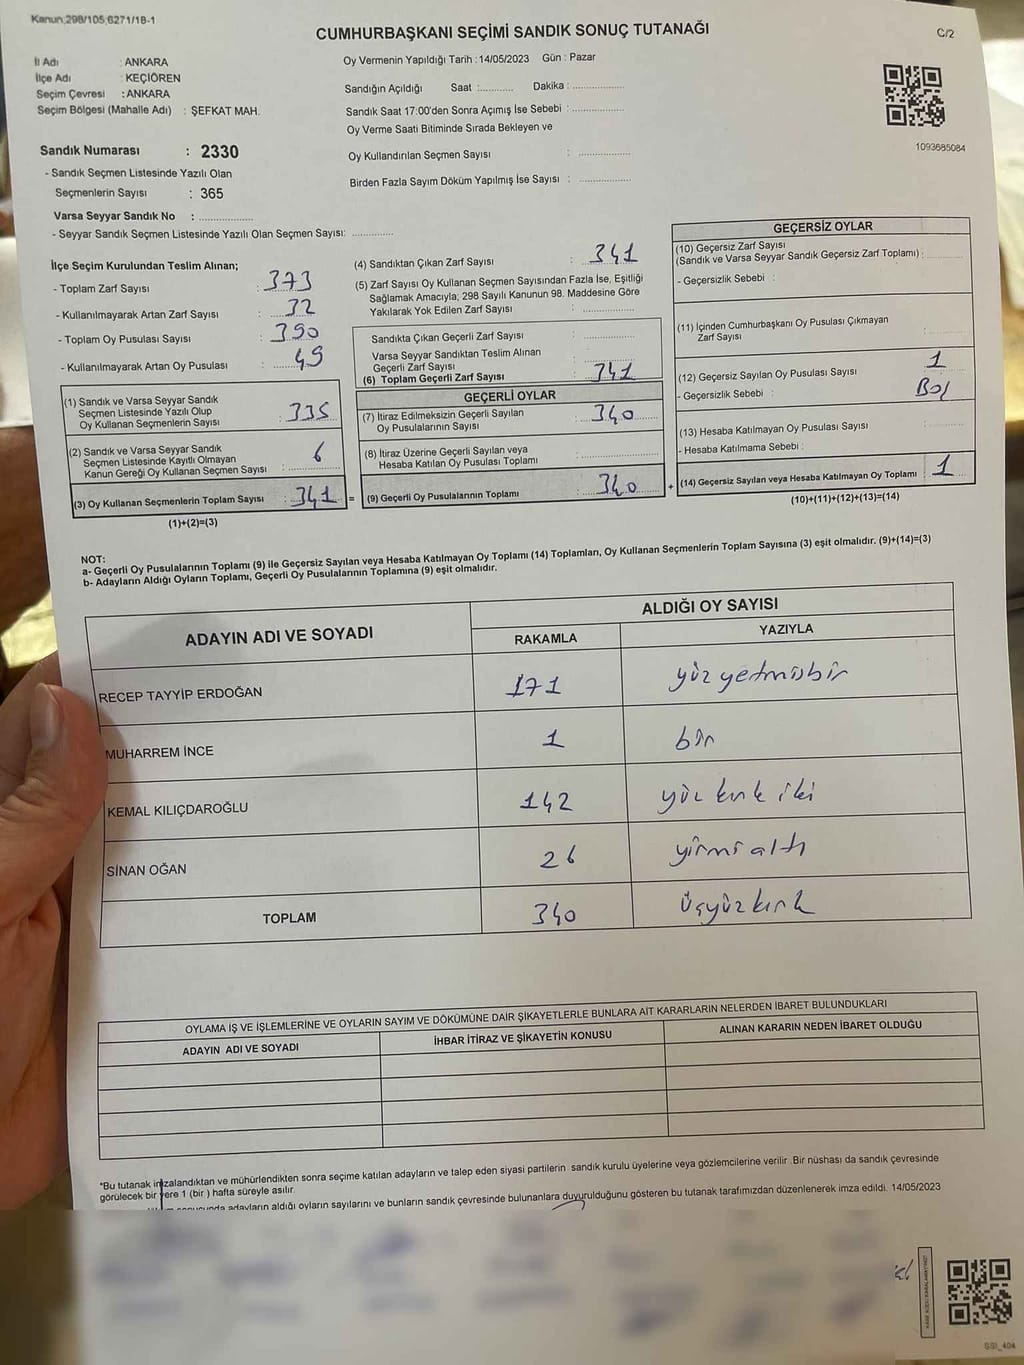 Kanun;298/105;6271/18-1
CUMHURBAŞKANI SEÇİMİ SANDIK SONUÇ TUTANAĞI
C/2
İl Adı : ANKARA
İlçe Adı : KEÇİÖREN
Seçim Çevresi : ANKARA
Seçim Bölgesi (Mahalle Adı) : ŞEFKAT MAH.
Oy Vermenin Yapıldığı Tarih : 14/05/2023 Gün : Pazar
Sandığın Açıldığı Saat :........... Dakika : ................
Sandık Saat 17:00'den Sonra Açımış İse Sebebi : ................
Oy Verme Saati Bitiminde Sırada Bekleyen ve
Oy Kullandırılan Seçmen Sayısı : ................
Birden Fazla Sayım Döküm Yapılmış İse Sayısı : ................
1093685084
Sandık Numarası : 2330
- Sandık Seçmen Listesinde Yazılı Olan
Seçmenlerin Sayısı : 365
Varsa Seyyar Sandık No : ................
- Seyyar Sandık Seçmen Listesinde Yazılı Olan Seçmen Sayısı: .............
İlçe Seçim Kurulundan Teslim Alınan;
- Toplam Zarf Sayısı : 373
- Kullanılmayarak Artan Zarf Sayısı : 32
- Toplam Oy Pusulası Sayısı : 390
- Kullanılmayarak Artan Oy Pusulası : 49
(1) Sandık ve Varsa Seyyar Sandık
Seçmen Listesinde Yazılı Olup
Oy Kullanan Seçmenlerin Sayısı : 335
(2) Sandık ve Varsa Seyyar Sandık
Seçmen Listesinde Kayıtlı Olmayan
Kanun Gereği Oy Kullanan Seçmen Sayısı : 6
(3) Oy Kullanan Seçmenlerin Toplam Sayısı : 341 =
(1)+(2)=(3)
(4) Sandıktan Çıkan Zarf Sayısı : 341
(5) Zarf Sayısı Oy Kullanan Seçmen Sayısından Fazla İse, Eşitliği
Sağlamak Amacıyla; 298 Sayılı Kanunun 98. Maddesine Göre
Yakılarak Yok Edilen Zarf Sayısı : ................
Sandıkta Çıkan Geçerli Zarf Sayısı : ................
Varsa Seyyar Sandıktan Teslim Alınan
Geçerli Zarf Sayısı : ................
(6) Toplam Geçerli Zarf Sayısı : 341
GEÇERLİ OYLAR
(7) İtiraz Edilmeksizin Geçerli Sayılan
Oy Pusulalarının Sayısı : 340
(8) İtiraz Üzerine Geçerli Sayılan veya
Hesaba Katılan Oy Pusulası Toplamı : ................
(9) Geçerli Oy Pusulalarının Toplamı : 340 +
GEÇERSİZ OYLAR
(10) Geçersiz Zarf Sayısı
(Sandık ve Varsa Seyyar Sandık Geçersiz Zarf Toplamı) : ............
- Geçersizlik Sebebi :
(11) İçinden Cumhurbaşkanı Oy Pusulası Çıkmayan
Zarf Sayısı : ............
(12) Geçersiz Sayılan Oy Pusulası Sayısı : 1
- Geçersizlik Sebebi : Boş
(13) Hesaba Katılmayan Oy Pusulası Sayısı : ............
- Hesaba Katılmama Sebebi :
(14) Geçersiz Sayılan veya Hesaba Katılmayan Oy Toplamı : 1
(10)+(11)+(12)+(13)=(14)
NOT:
a- Geçerli Oy Pusulalarının Toplamı (9) ile Geçersiz Sayılan veya Hesaba Katılmayan Oy Toplamı (14) Toplamları, Oy Kullanan Seçmenlerin Toplam Sayısına (3) eşit olmalıdır. (9)+(14)=(3)
b- Adayların Aldığı Oyların Toplamı, Geçerli Oy Pusulalarının Toplamına (9) eşit olmalıdır.
ADAYIN ADI VE SOYADI
ALDIĞI OY SAYISI
RAKAMLA YAZIYLA
RECEP TAYYİP ERDOĞAN 171 yüz yetmişbir
MUHARREM İNCE 1 bir
KEMAL KILIÇDAROĞLU 142 yüz kırk iki
SİNAN OĞAN 26 yirmi altı
TOPLAM 340 Üçyüzkırk
OYLAMA İŞ VE İŞLEMLERİNE VE OYLARIN SAYIM VE DÖKÜMÜNE DAİR ŞİKAYETLERLE BUNLARA AİT KARARLARIN NELERDEN İBARET BULUNDUKLARI
ADAYIN ADI VE SOYADI İHBAR İTİRAZ VE ŞİKAYETİN KONUSU ALINAN KARARIN NEDEN İBARET OLDUĞU
*Bu tutanak imzalandıktan ve mühürlendikten sonra seçime katılan adayların ve talep eden siyasi partilerin sandık kurulu üyelerine veya gözlemcilerine verilir .Bir nüshası da sandık çevresinde
görülecek bir yere 1 (bir ) hafta süreyle asılır.
adayların aldığı oyların sayılarını ve bunların sandık çevresinde bulunanlara duyurulduğunu gösteren bu tutanak tarafımızdan düzenlenerek imza edildi. 14/05/2023
GSI_404